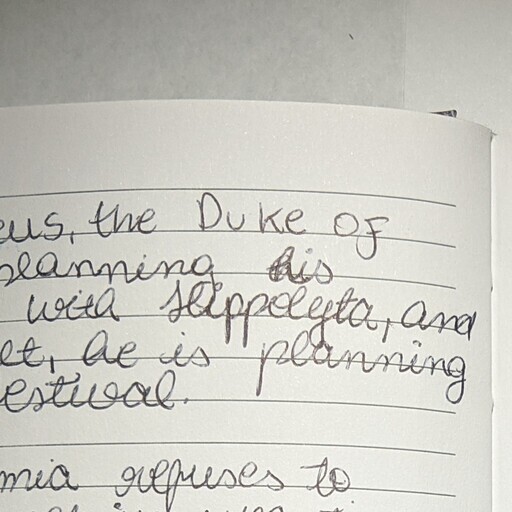 eus, the Duke of
planning his
with Hippolyta, and
et, he is planning
estival.
mia refuses to